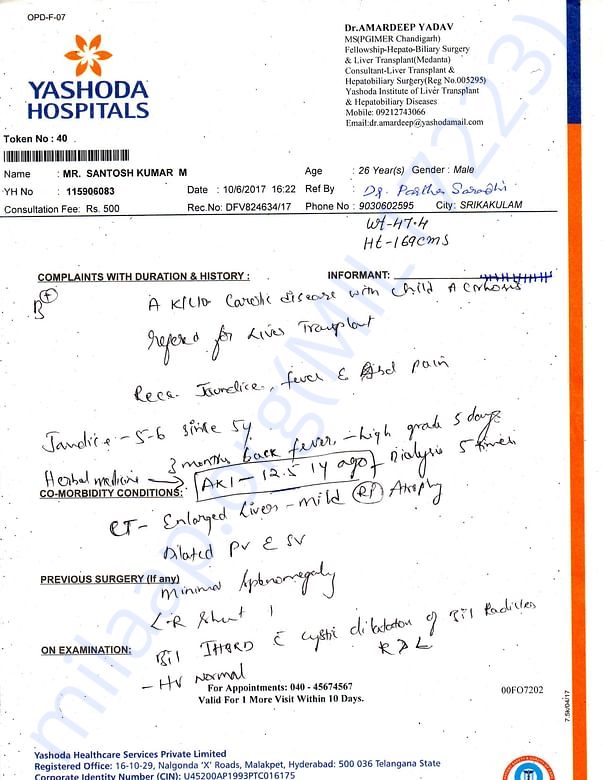 OPD-F-07
YASHODA
HOSPITALS
Dr.AMARDEEP YADAV
MS(PGIMER Chandigarh)
Fellowship-Hepato-Biliary Surgery
& Liver Transplant(Medanta)
Consultant-Liver Transplant &
Hepatobiliary Surgery(Reg No.005295)
Yashoda Institute of Liver Transplant
& Hepatobiliary Diseases
Mobile: 09212743066
Email:dr.amardeep@yashodamail.com
Token No : 40
Name : MR. SANTOSH KUMAR M Age : 26 Year(s) Gender : Male
YH No : 115906083 Date : 10/6/2017 16:22 Ref By : Dr. Partha Saradhi
Consultation Fee: Rs. 500 Rec.No: DFV824634/17 Phone No : 9030602595 City: SRIKAKULAM
Wt-47.4
Ht-169cms
COMPLAINTS WITH DURATION & HISTORY : INFORMANT:
B+ A K/C/O disease with Child A Cirrhosis
Refered for Liver Transplant
Recc. Jaundice, fever & Abd pain
Jandice - 5-6 since 5y
3 months back fever - high grade 5 days
Herbal medicine → AKI - 12.5 1y ago Dialysis 5 times
CO-MORBIDITY CONDITIONS:
CT - Enlarged Liver - mild Atrophy
Dilated PV & SV
PREVIOUS SURGERY (If any)
minimal splenomegaly
L-R Shunt
ON EXAMINATION:
Bil IHBRD c cystic dilatation of Bil Radicles
R > L
- HV normal
For Appointments: 040 - 45674567
Valid For 1 More Visit Within 10 Days.
00FO7202
7.5k/04/17
Yashoda Healthcare Services Private Limited
Registered Office: 16-10-29, Nalgonda 'X' Roads, Malakpet, Hyderabad: 500 036 Telangana State
Corporate Identity Number (CIN): U45200AP1993PTC016175